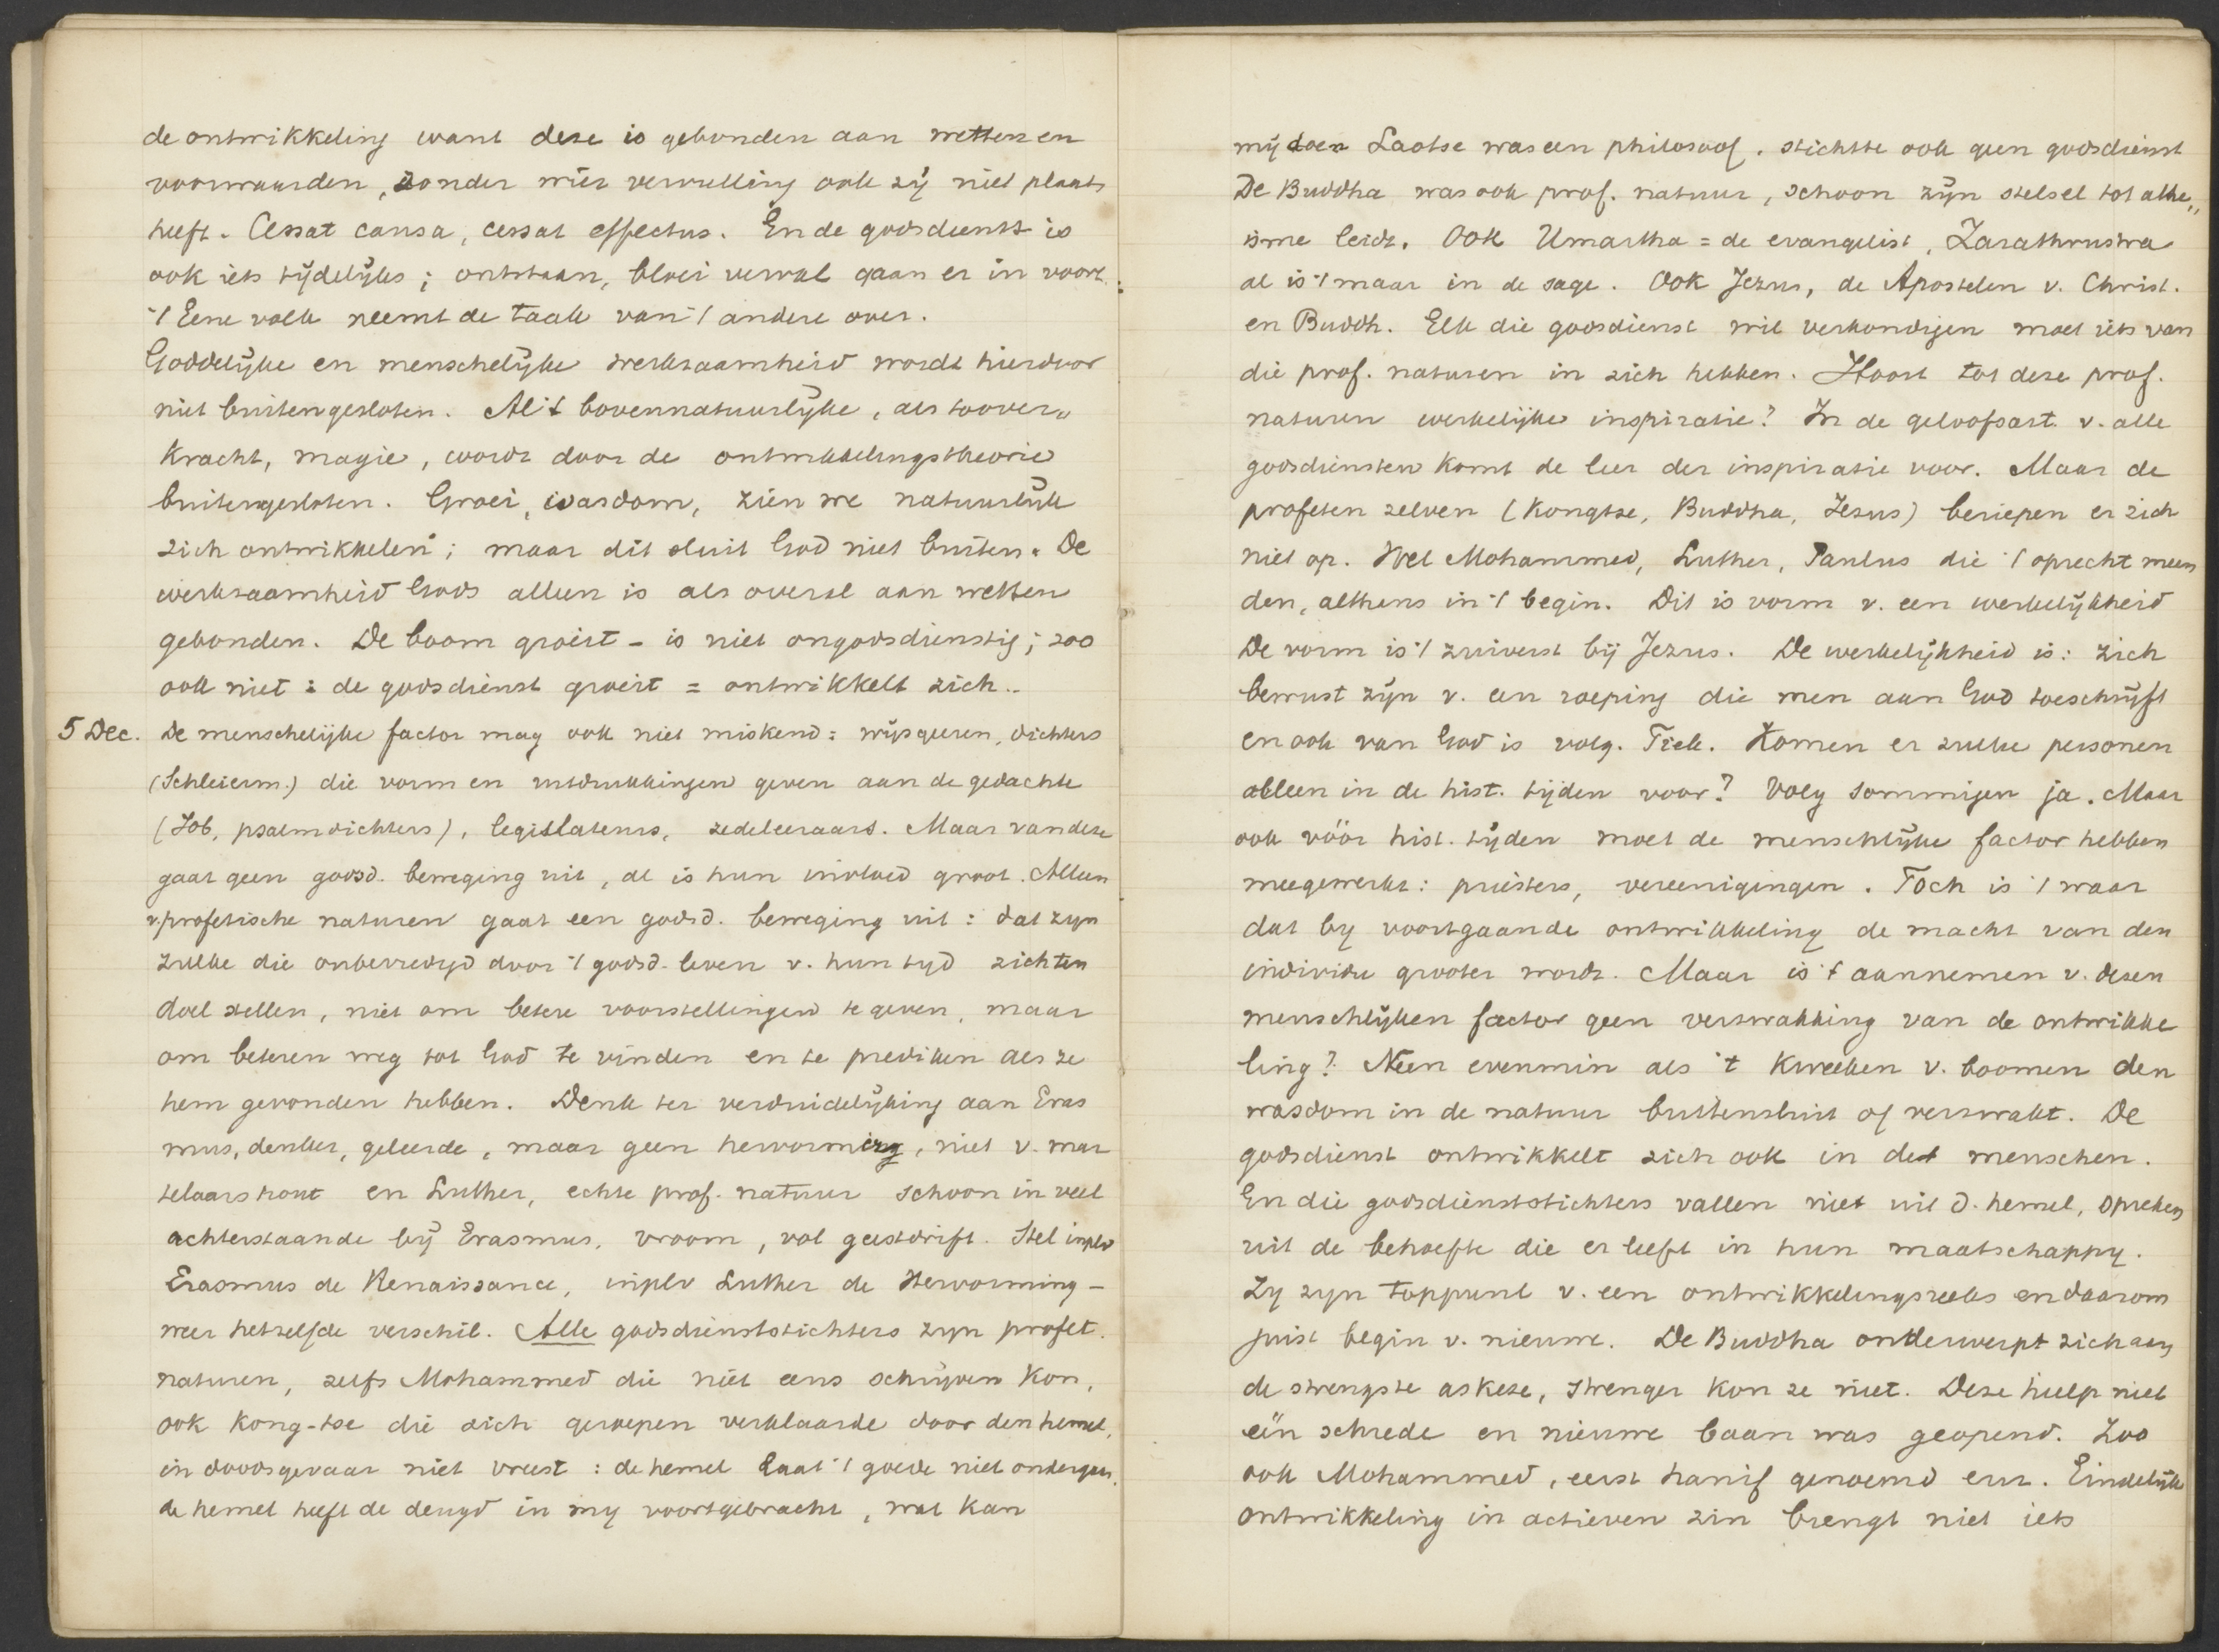 de ontwikkeling want deze is gebonden aan wetten en
voorwaarden, zonder wier vervulling ook zij niet plaats
heeft. Cessat causa, cessat effectus. En de godsdienst is
ook iets tijdelijks; ontstaan, bloei verval gaan er in voort.
't Eene volk neemt de taak van 't andere over.
Goddelijke en menschelijke werkzaamheid wordt hierdoor
niet buitengesloten. Al 't bovennatuurlijke, als toover„
kracht, magie, wordt door de ontwikkelingstheorie
buitengesloten. Groei, wasdom, zien we natuurlijk
zich ontwikkelen; maar dit sluit God niet buiten. De
werkzaamheid Gods alleen is als overal aan wetten
gebonden. De boom groeit – is niet ongodsdienstig; zoo
ook niet: de godsdienst groeit = ontwikkelt zich..
5 Dec. De menschelijke factor mag ook niet miskend: wijsgeeren, dichters
(Schleierm.) die vorm en uitdrukkingen geven aan de gedachte
(Job, psalmdichters), legislateurs, zedeleeraars. Maar van deze
gaat geen godsd. beweging uit, al is hun invloed groot. Alleen
v. profetische naturen gaat een godsd. beweging uit: dat zyn
zulke die onbevredigd door 't godsd. leven v. hun tyd zich ten
doel stellen, niet om betere voorstellingen te geven, maar
om beteren weg tot God te vinden en te prediken als ze
hem gevonden hebben. Denk ter verduidelijking aan Eras
mus, denker, geleerde, maar geen hervorming, niet v. mar
telaarshout en Luther, echte prof. natuur schoon in veel
achterstaande bij Erasmus, vroom, vol geestdrift. Stel inplv
Erasmus de Renaissance, inplv Luther de Hervorming –
weer hetzelfde verschil. Alle godsdienststichters zyn profet.
naturen, zelfs Mohammed die niet eens schrijven kon,
ook Kong-tse die zich geroepen verklaarde door den hemel,
in doodsgevaar niet vreest: de hemel laat 't goede niet ondergaan.
de hemel heeft de deugd in my voortgebracht, wat kan
mij doen Laotse was een philosoof. stichtte ook geen godsdienst
De Buddha was ook prof. natuur, schoon zijn stelsel tot athe„
isme leidt. Ook Umartha = de evangelist, Zarathrustra
al is 't maar in de sage. Ook Jezus, de Apostelen v. Christ.
en Buddh. Elk die godsdienst wil verkondigen moet iets van
die prof. naturen in zich hebben. Hoort tot deze prof.
naturen werkelijke inspiratie? In de geloofsart. v. alle
godsdiensten komt de leer der inspiratie voor. Maar de
profeten zelven (Kongtse, Buddha, Jezus) beriepen er zich
niet op. Wel Mohammed, Luther, Paulus die 't oprecht meen
den, althans in 't begin. Dit is vorm v. een werkelijkheid
De vorm is 't zuiverst bij Jezus. De werkelijkheid is: zich
bewust zijn v. een roeping die men aan God toeschrijft
en ook van God is volg. Tiele. Komen er zulke personen
alleen in de hist. tijden voor? Volg sommigen ja. Maar
ook vóór hist. tijden moet de menschlijke factor hebben
meegewerkt: priesters, vereenigingen. Toch is 't waar
dat by voortgaande ontwikkeling de macht van den
individu grooter wordt. Maar is 't aannemen v. dezen
menschlijken factor geen verzwakking van de ontwikke
ling? Neen evenmin als 't kweeken v. boomen den
wasdom in de natuur buitensluit of verzwakt. De
godsdienst ontwikkelt zich ook in de menschen.
En die godsdienststichters vallen niet uit d. hemel, spreken
uit de behoefte die er leeft in hun maatschappy.
Zy zyn toppunt v. een ontwikkelingsreeks en daarom
juist begin v. nieuwe. De Buddha onderwerpt zich aan
de strengste askese, strenger kon ze niet. Deze hielp niet
één schrede en nieuwe baan was geopend. Zoo
ook Mohammed, eerst hanif genoemd enz. Eindelijk
ontwikkeling in actieven zin brengt niet iets